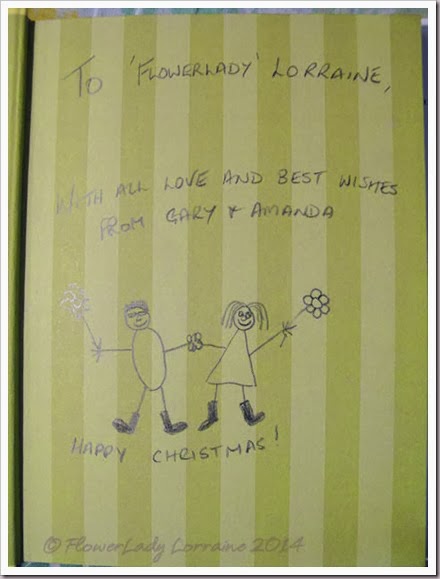 To 'FLOWERLADY' LORRAINE,
WITH ALL LOVE AND BEST WISHES
FROM GARY & AMANDA
HAPPY CHRISTMAS!
© FlowerLady Lorraine 2014